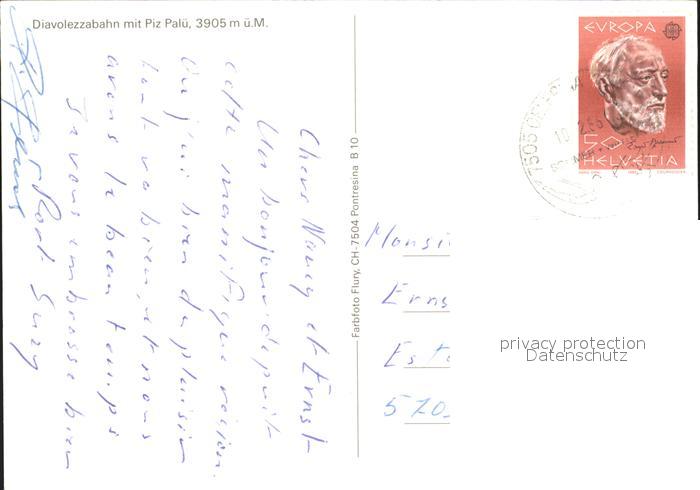 Diavolezzabahn mit Piz Palü, 3905 m ü.M.
Chers Nancy et Ernst
Un bonjour depuis
cette magnifique région.
Où j'ai bien du plaisir
tout va bien, et nous
avons le beau temps
Je vous embrasse bien
Suzy
Farbfoto Flury, CH-7504 Pontresina B 10
EUROPA
50
HELVETIA
7505
Monsi
Erns
Est
570
privacy protection
Datenschutz